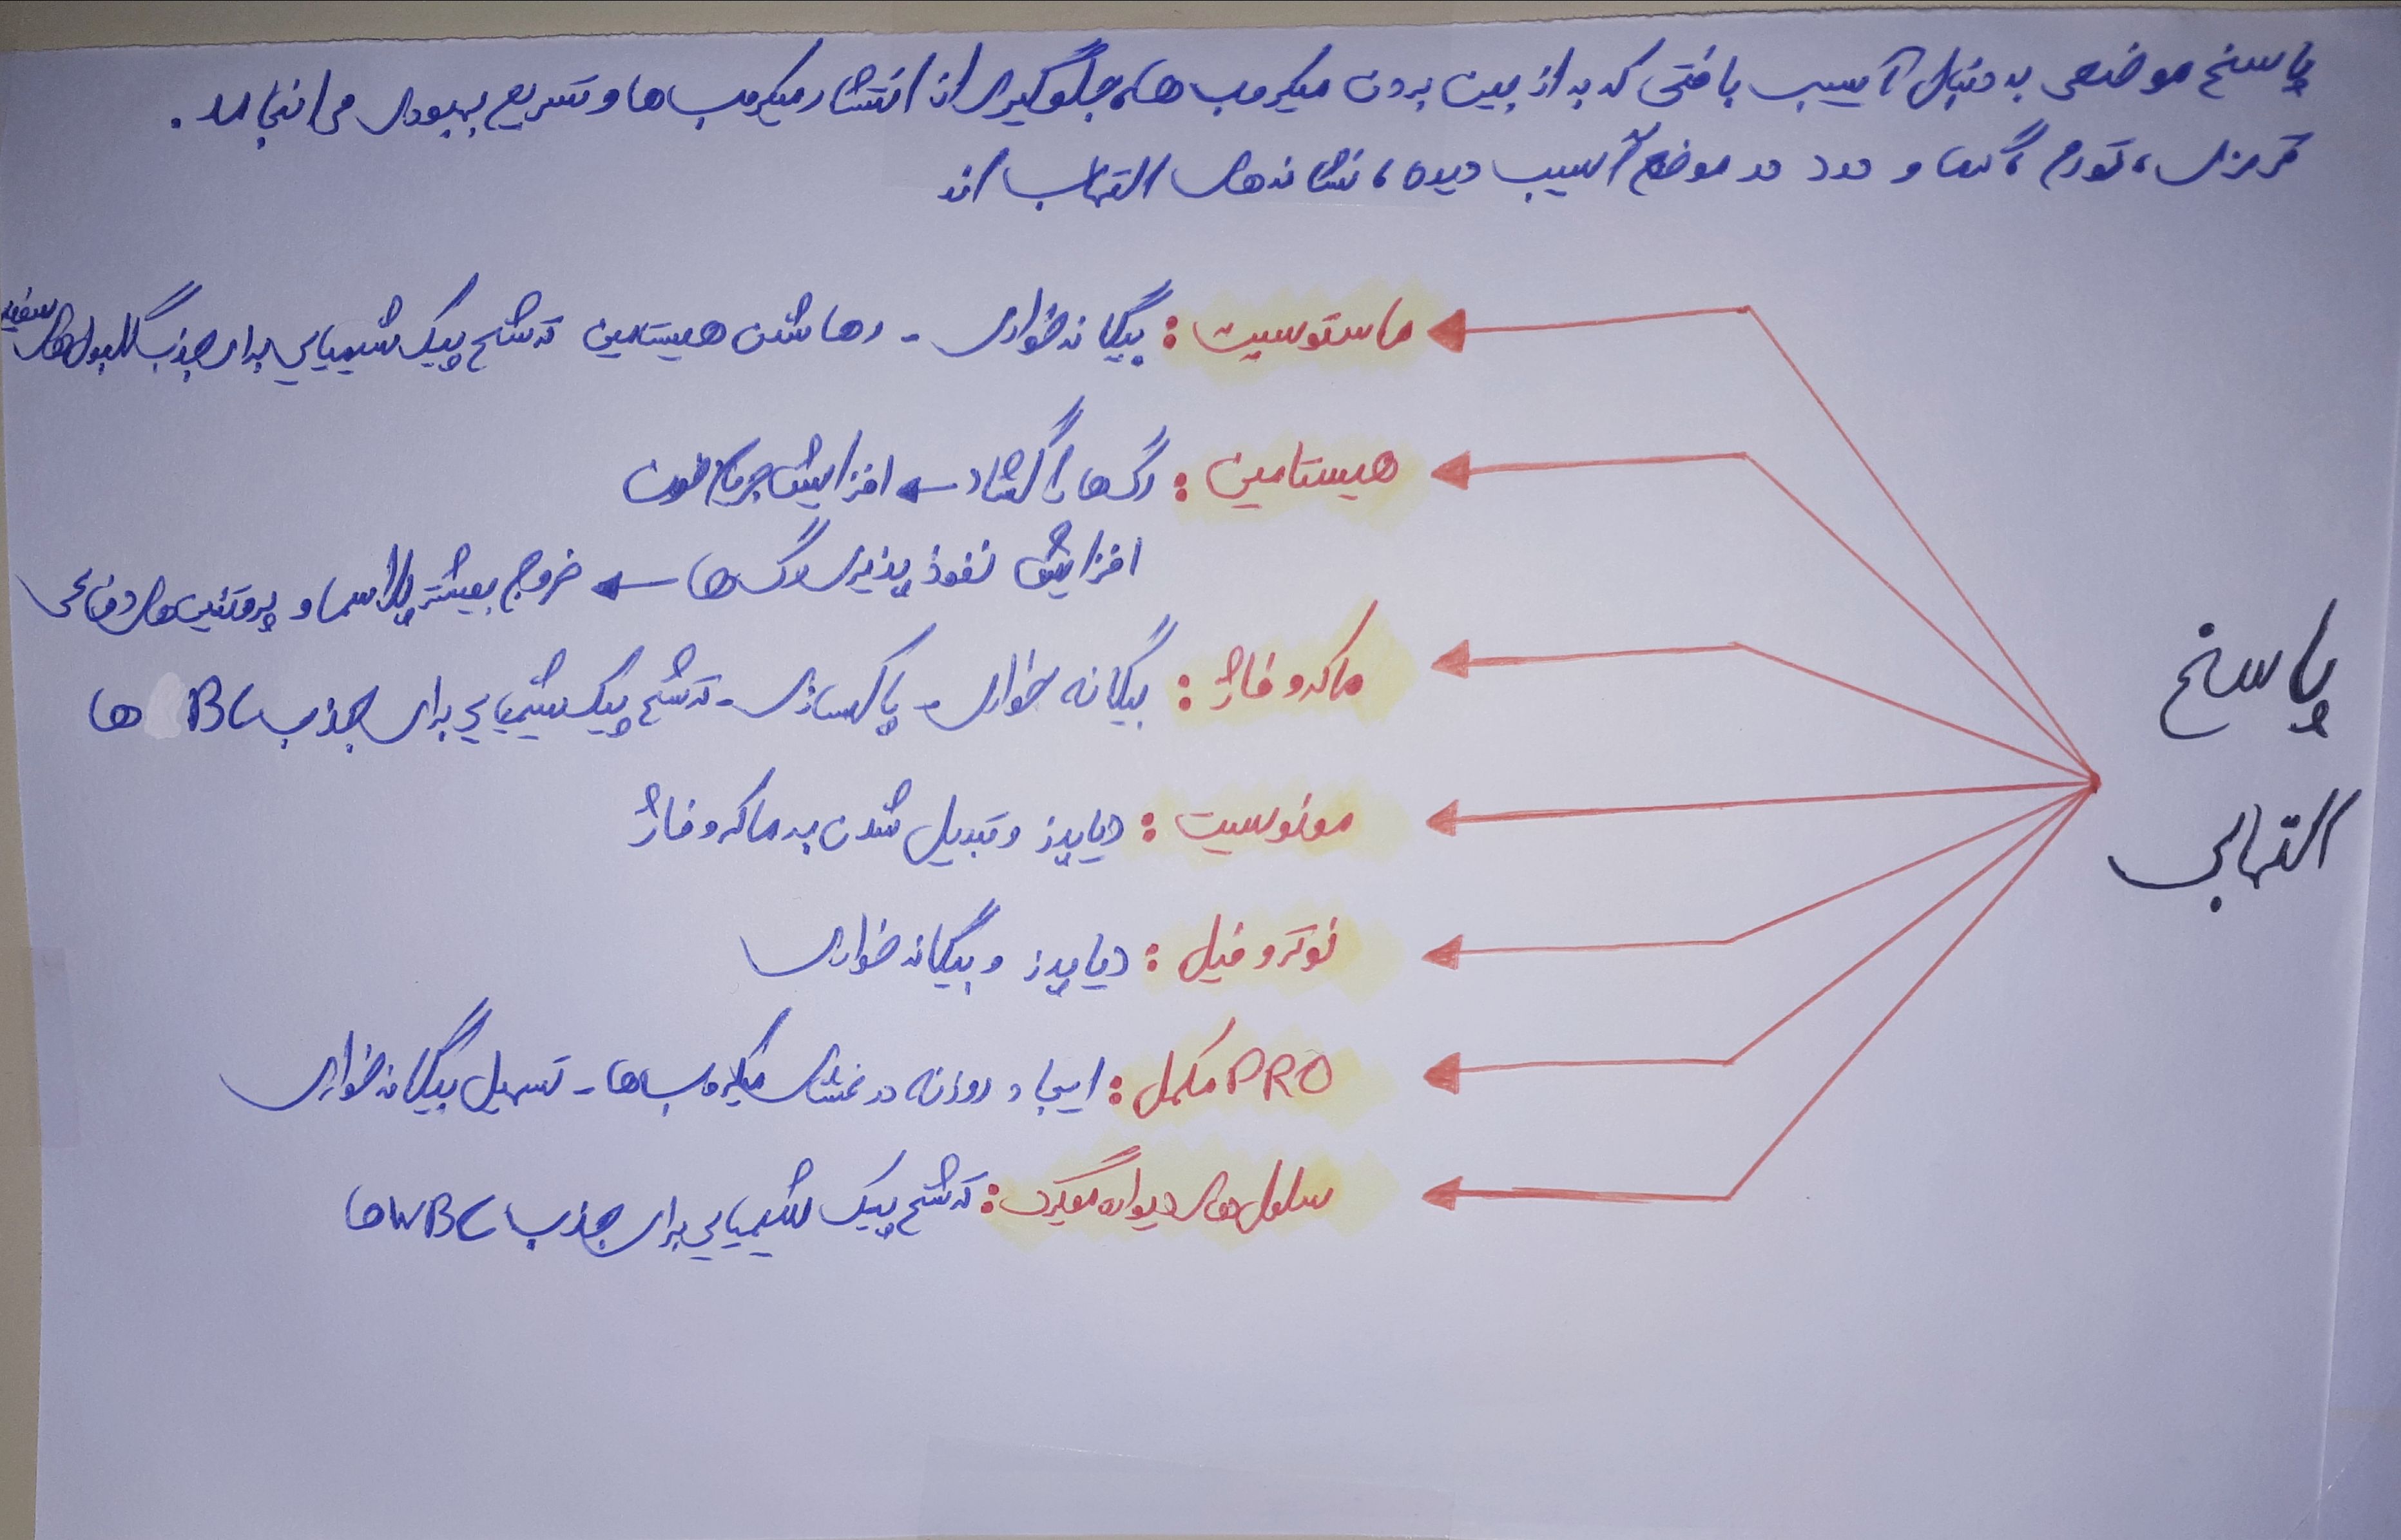 پاسخ موضعی به دنبال آسیب بافتی که به از بین بردن میکروب ها، جلوگیری از انتشار میکروب ها و تسریع بهبودی می انجامد .
قرمزی، تورم، گرما و درد در موضع آسیب دیده، نشانه های التهاب اند
پاسخ
التهابی
ماستوسیت : بیگانه خواری - رها شدن هیستامین ترشح پیک شیمیایی برای جذب گلبول های سفید
هیستامین : رگ ها را گشاد ← افزایش جریان خون
افزایش نفوذ پذیری رگ ها ← خروج بیشتر پلاسما و پروتئین های دفاعی
ماکروفاژ : بیگانه خواری - پاکسازی - ترشح پیک شیمیایی برای جذب BC ها
مونوسیت : دیاپدز و تبدیل شدن به ماکروفاژ
نوتروفیل : دیاپدز و بیگانه خواری
PRO مکمل : ایجاد روزنه در غشای میکروب ها - تسهیل بیگانه خواری
سلول های دیواره مویرگ : ترشح پیک شیمیایی برای جذب WBC ها